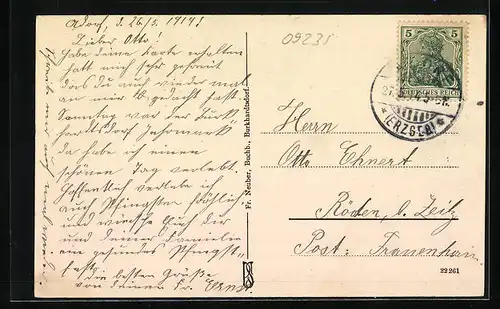 Adorf, d. 26/5. 1914.
Lieber Otto!
Habe deine Karte erhalten
hatt mich sehr gefreut
dass du auch wieder mal
an mir gedacht hast.
Sonntag war der
da habe ich einen
schönen Tag verlebt.
Hoffentlich verlebe ich
auch Pfingsten fröhlich
und wünsche Euch dir
und deiner Familie
ein gesundes Pfingst-
fest.
die besten Grüße
von deinem Fr. Ernst
Fr. Neuber, Buchb., Burkhardtsdorf.
09235
5 5
DEUTSCHES REICH
(ERZGEB.)
Herrn
Otto Ehnert
Röden, b. Zeitz
Post: Frauenhain
22261